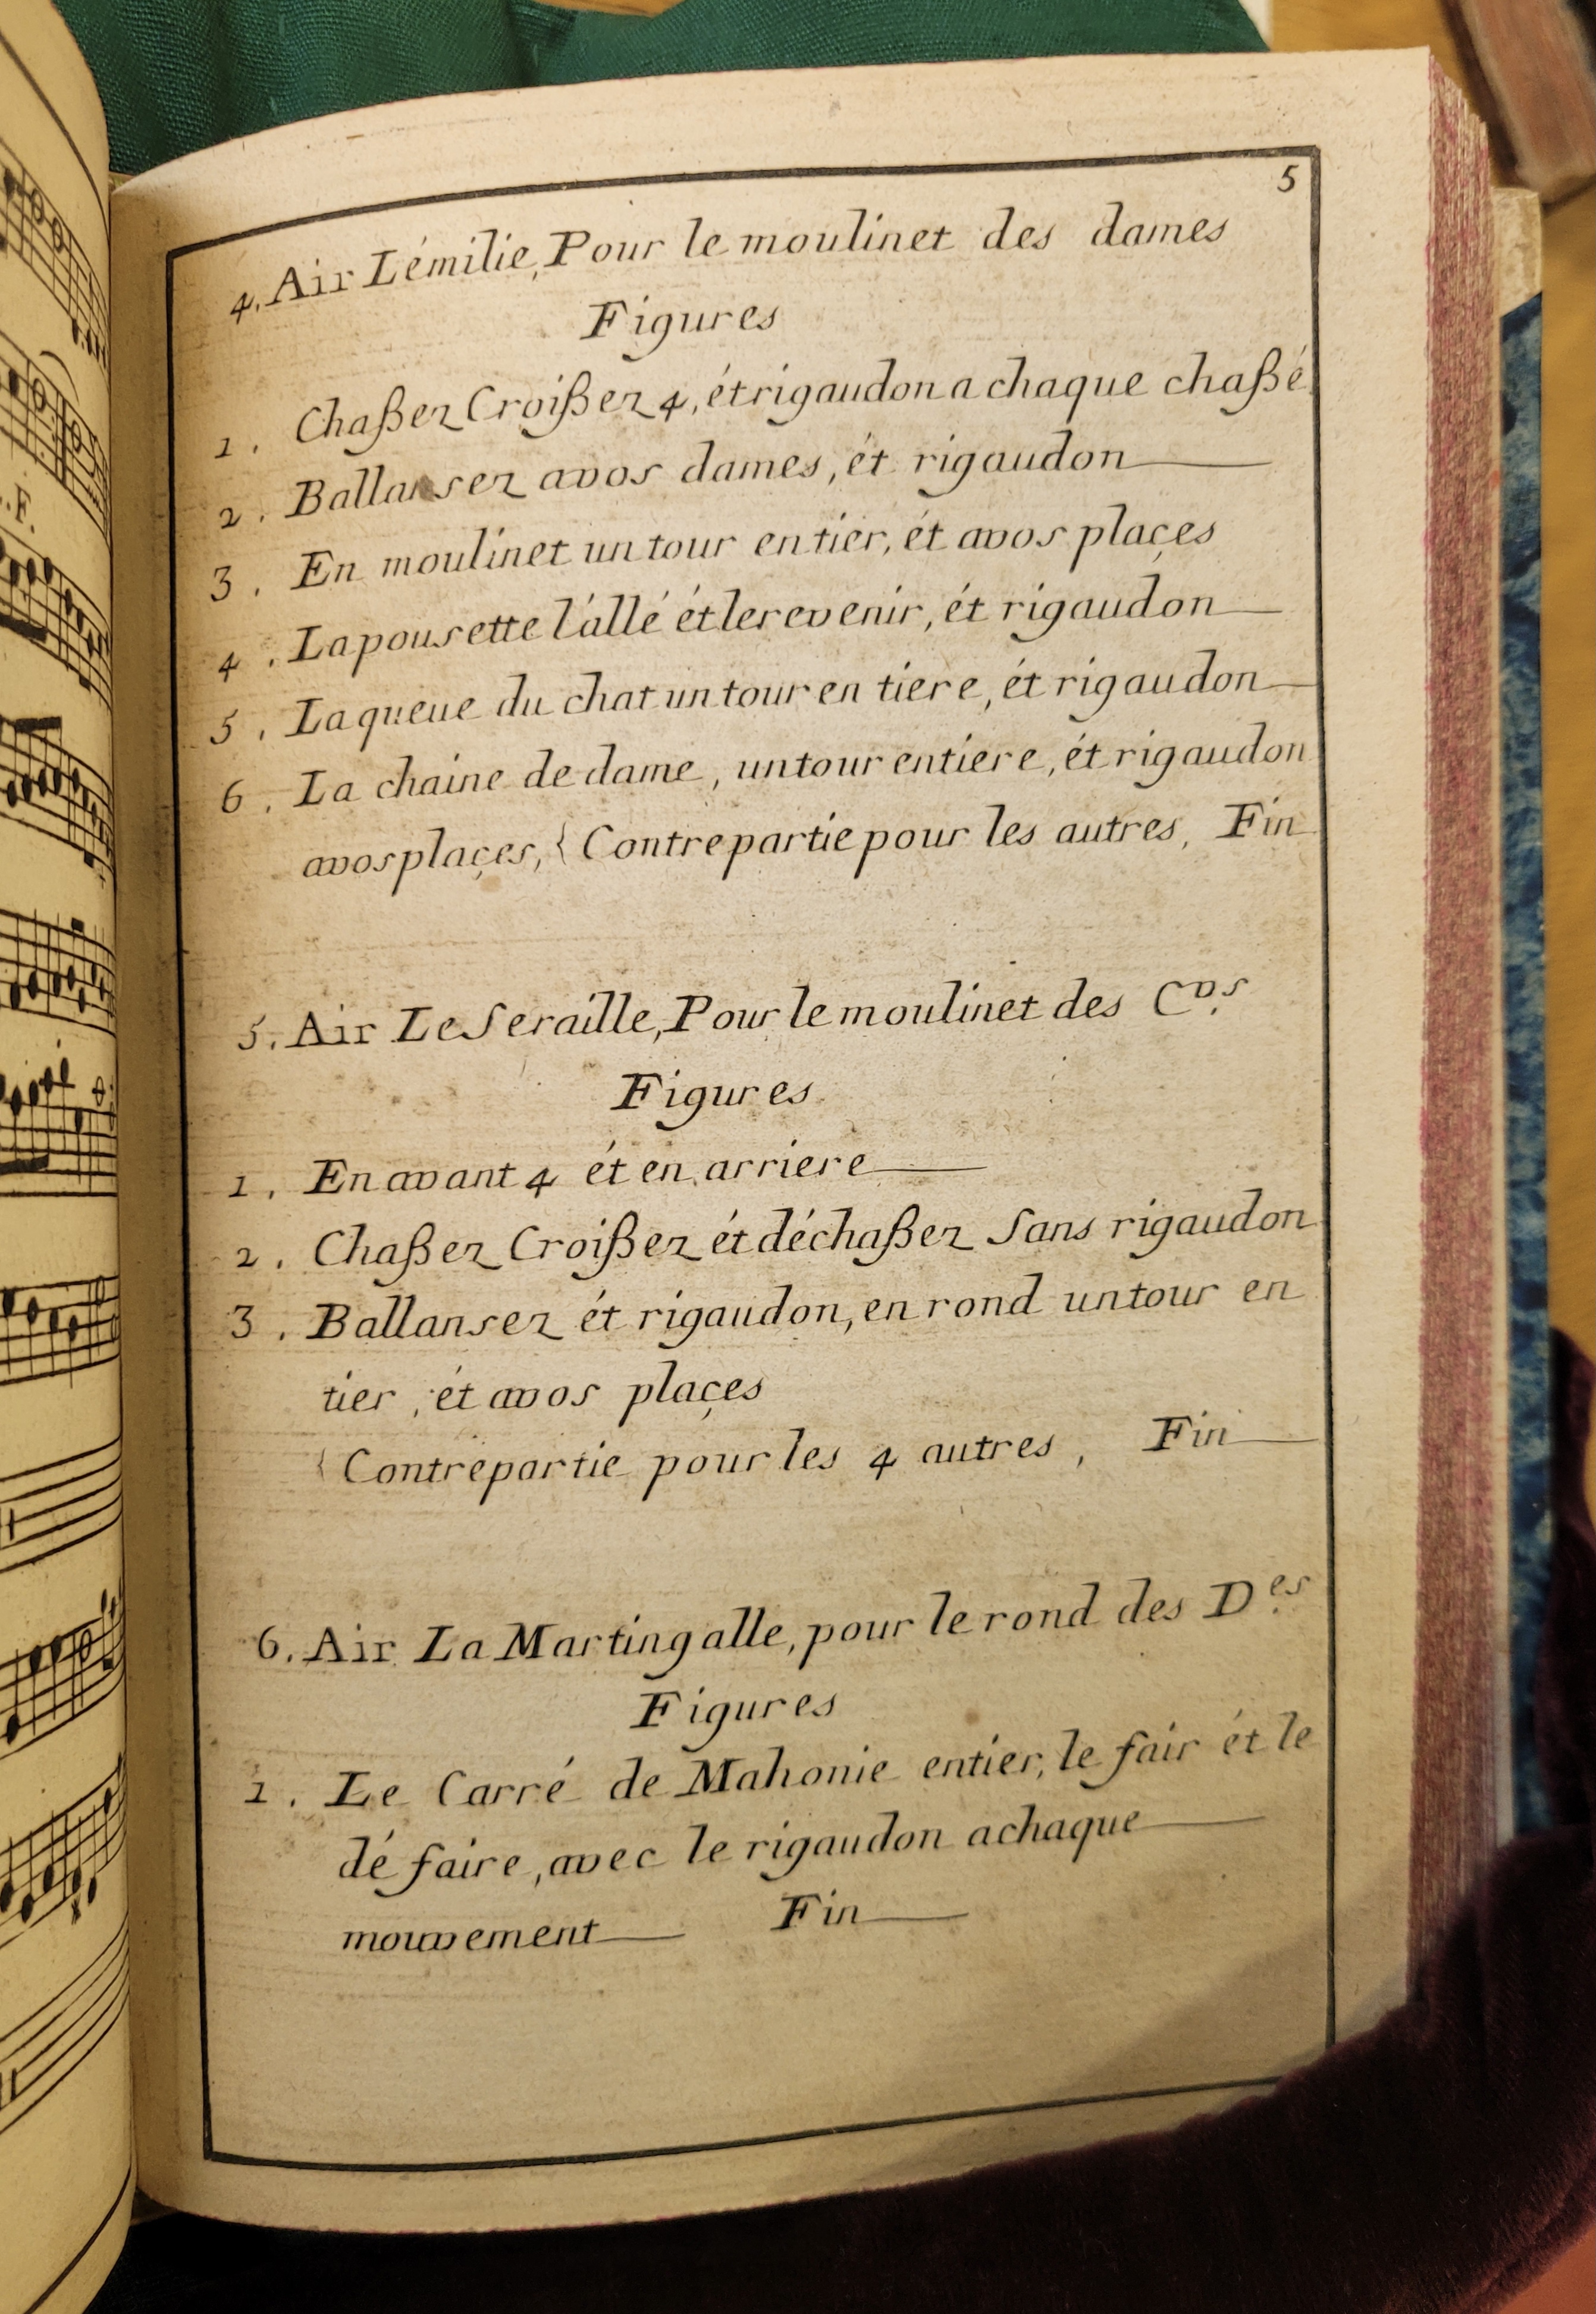 5
4. Air Lémilie, Pour le moulinet des dames
Figures
1. Chaßez Croißez 4, ét rigaudon a chaque chaßé
2. Ballansez avos dames, ét rigaudon
3. En moulinet un tour entier, ét avos plaçes
4. La pousette l'allé ét le revenir, ét rigaudon
5. La queue du chat un tour en tiere, ét rigaudon
6. La chaine de dame, un tour entiere, ét rigaudon
avos plaçes, { Contrepartie pour les autres, Fin
5. Air Le Seraille, Pour le moulinet des C.vs
Figures
1. En avant 4 ét en arriere
2. Chaßez Croißez ét déchaßez Sans rigaudon
3. Ballansez ét rigaudon, en rond un tour en
tier, ét avos plaçes
{ Contrepartie pour les 4 autres, Fin
6. Air La Martingalle, pour le rond des D.es
Figures
1. Le Carré de Mahonie entier, le fair ét le
dé faire, avec le rigaudon a chaque
mouvement Fin
F.